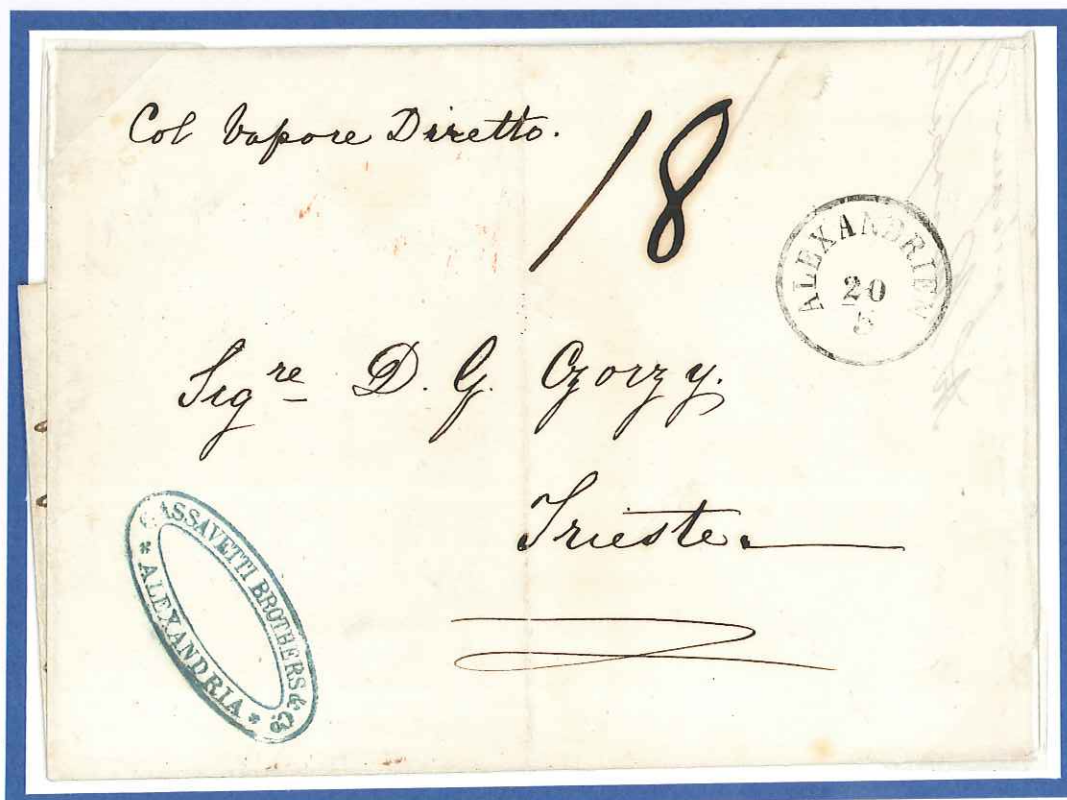 Col Vapore Diretto.
18
ALEXANDRIEN
20
5
Sigre D. G.
Trieste.
CASSAVETTI BROTHERS & Co.
* ALEXANDRIA *